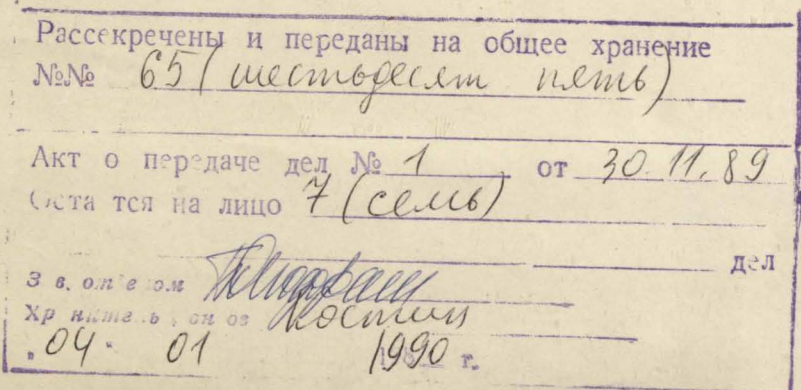 Рассекречены и переданы на общее хранение
№№ 65 (шестьдесят пять)
Акт о передаче дел № 1 от 30.11.89
Оста тся на лицо 7 (семь)
дел
Костин
"04" 01 1990 г.